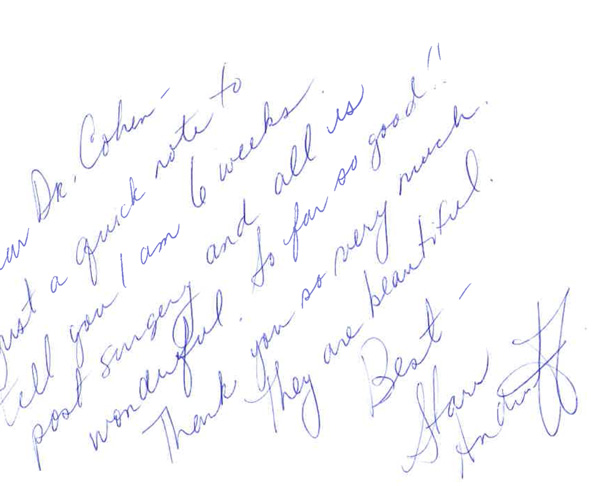 ear Dr. Cohen -
Just a quick note to
tell you I am 6 weeks
post surgery and all is
wonderful. So far so good!!
Thank you so very much.
They are beautiful.
Best -
Starr